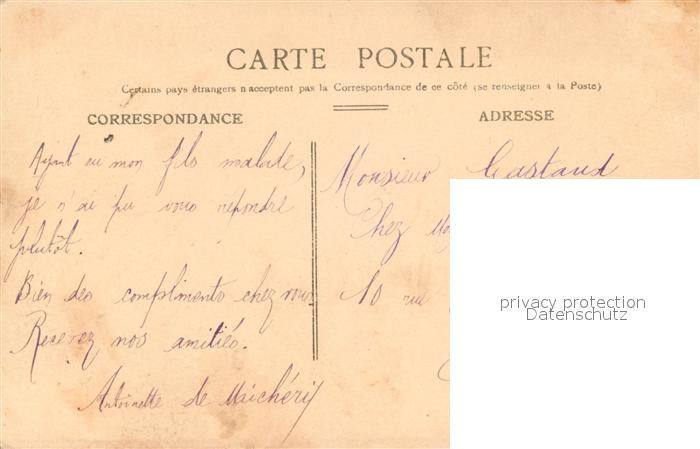 CARTE POSTALE
Certains pays étrangers n'acceptent pas la Correspondance de ce côté (se renseigner à la Poste)
CORRESPONDANCE
ADRESSE
Ayant eu mon fils malade,
je n'ai pu vous répondre
plutôt.
Bien des compliments chez vous
Recevez nos amitiés.
Antoinette de
Monsieur Gastaud
Chez
10 rue
privacy protection
Datenschutz